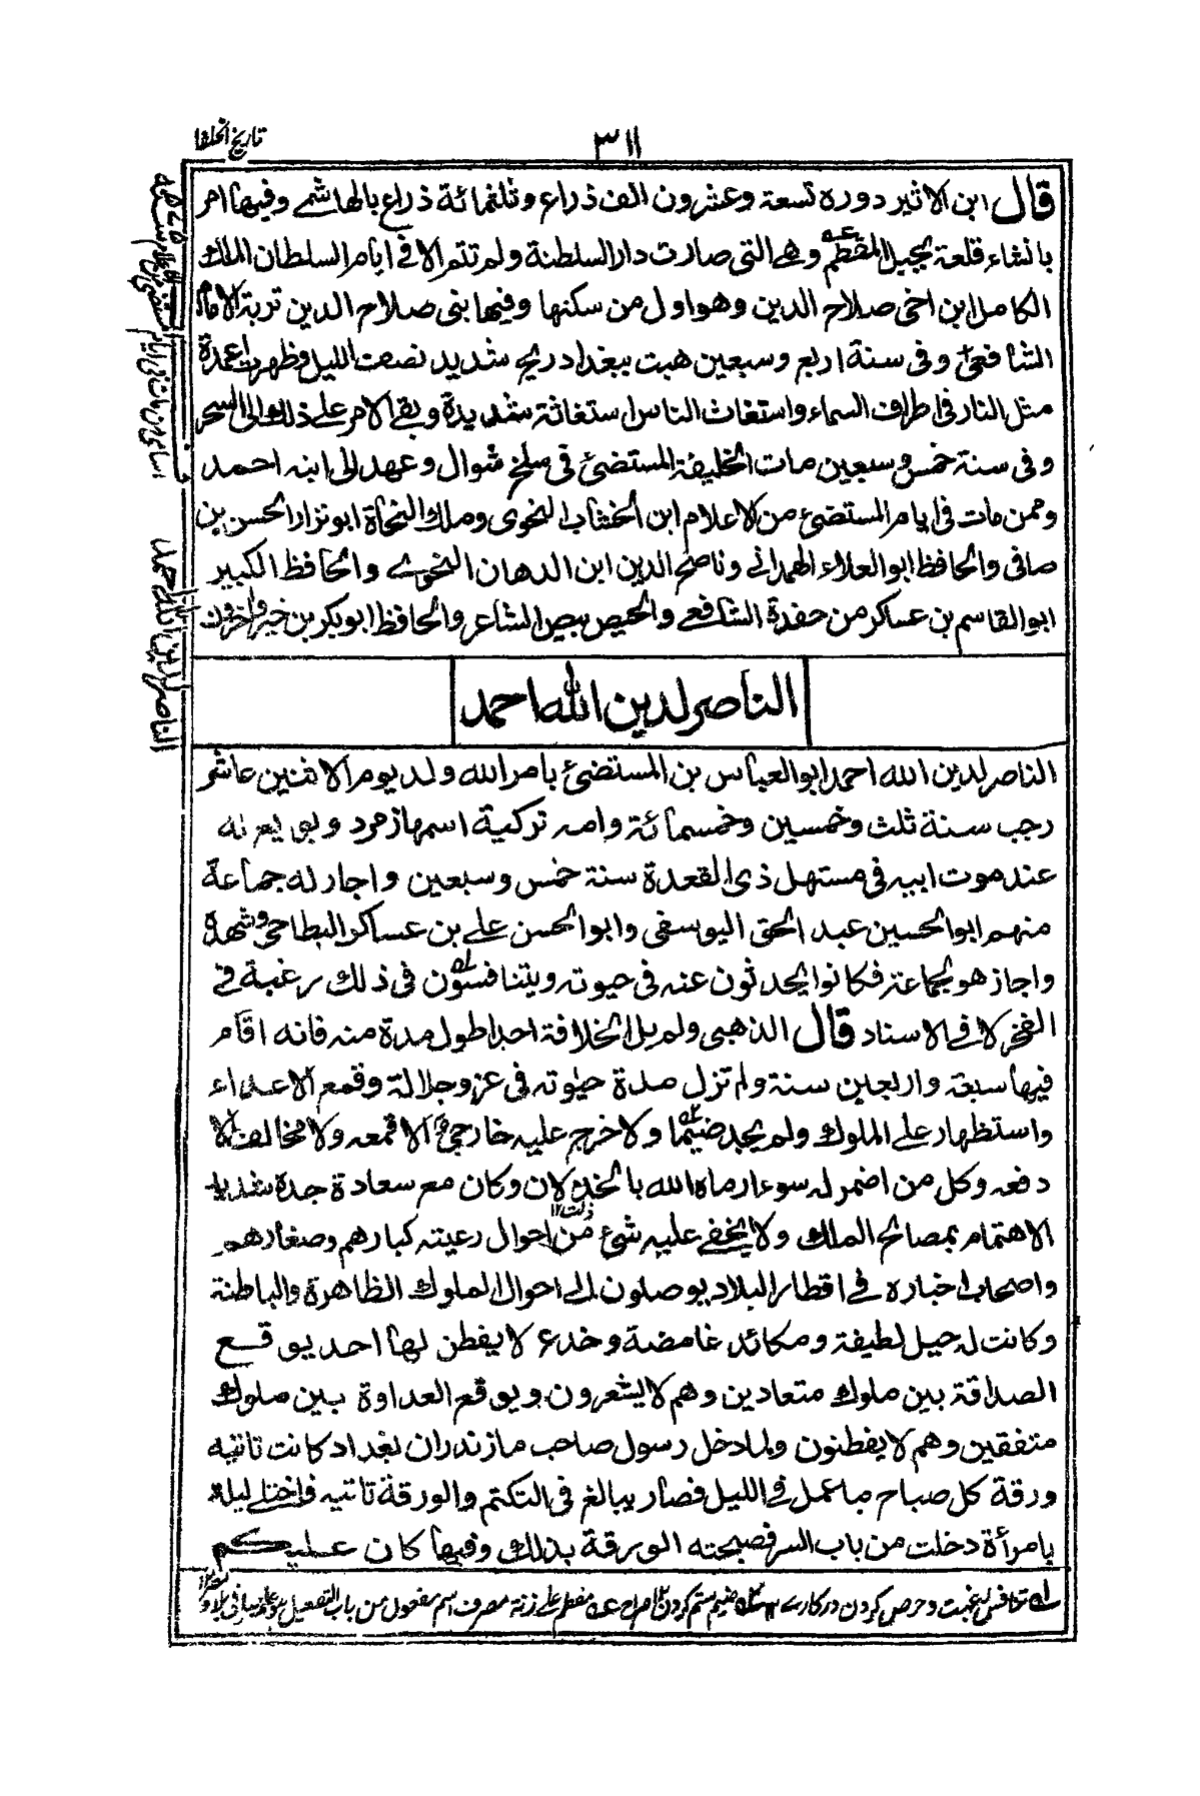 تاريخ الخلفا
٣١١
قال ابن الاثير دوره تسعة وعشرون الف ذراع وثلثمائة ذراع بالهاشمے وفيها امر
بانشاء قلعة بجبل المقطم وهے التى صارت دار السلطنة ولم تتم الا فے ايام السلطان الملك
الكامل ابن اخى صلاح الدين وهو اول من سكنها وفيها بنى صلاح الدين تربة الامام
الشافعى وفى سنة اربع وسبعين هبت ببغداد ريح شديد نصف الليل وظهرت اعمدة
مثل النار فى اطراف السماء واستغاث الناس استغاثة شديدة وبقے الامر علے ذلك الى السحر
وفى سنة خمس وسبعين مات الخليفة المستضئ فى سلخ شوال وعهد الى ابنه احمد
وممن مات فى ايام المستضئ من الاعلام ابن الخشاب النحوى وملك النحاة ابو نزار الحسن بن
صافى والحافظ ابو العلاء الهمدانے وناصح الدين ابن الدهان النحوے والحافظ الكبير
ابو القاسم بن عساكر من حفدة الشافعے والحيص بيص الشاعر والحافظ ابو بكر بن خير واخرون
الناصر لدين الله احمد
الناصر لدين الله احمد ابو العباس بن المستضئ بامر الله ولد يوم الاثنين عاشر
رجب سنة ثلث وخمسين وخمسمائة وامه تركية اسمها زمرد وبويع له
عند موت ابيه فى مستهل ذى القعدة سنة خمس وسبعين واجاز له جماعة
منهم ابو الحسين عبد الحق اليوسفى وابو الحسن علے بن عساكر البطاحى وشهدة
واجاز هو لجماعة فكانوا يحدثون عنه فى حيوته ويتنافسون فى ذلك رغبة فے
الفخر لا فے الاسناد قال الذهبى ولم يل الخلافة احد اطول مدة منه فانه اقام
فيها سبعة واربعين سنة ولم تزل مدة حيوته فى عز وجلالة وقمع الاعداء
واستظهار علے الملوك ولم يجد ضيما ولا خرج عليه خارجى الا قمعه ولا مخالف الا
دفعه وكل من اضمر له سوءا رماه الله بالخذلان وكان مع سعادة جده شديد
الاهتمام بمصالح الملك ولا يخفے عليه شئ من احوال رعيته كبارهم وصغارهم
واصحاب اخباره فے اقطار البلاد يوصلون اليه احوال الملوك الظاهرة والباطنة
وكانت له حيل لطيفة ومكائد غامضة وخدع لا يفطن لها احد يوقع
الصداقة بين ملوك متعادين وهم لا يشعرون ويوقع العداوة بين ملوك
متفقين وهم لا يفطنون ولما دخل رسول صاحب مازندران بغداد كانت تاتيه
ورقة كل صباح بما عمل فے الليل فصار يبالغ فى التكتم والورقة تاتيه فاختلے ليلة
بامرأة دخلت من باب السر فصبحته الورقة بذلك وفيها كان عليكم
لہ تنافس رغبت وحرص كردن در كارے ستم كردن صراح مقطم علے زنة مصرف اسم مفعول من باب التفعيل
الناصر لدين الله احمد